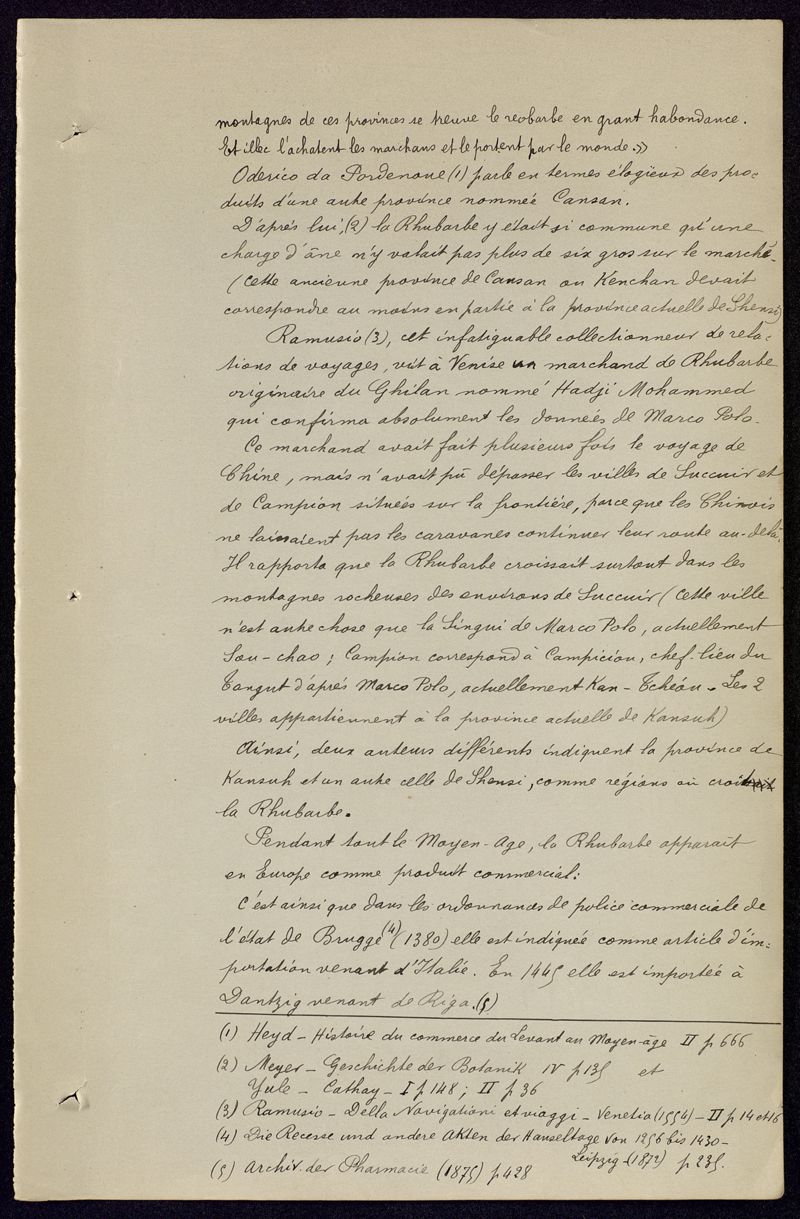 montagnes de ces provinces se treuve le reobarbe en grant habondance.
Et illec l'achatent les marchans et le portent par le monde.»
Oderico da Pordenone (1) parle en termes élogieux des pro-
duits d'une autre province nommée Cansan.
D'après lui, (2) la Rhubarbe y était si commune qu'une
charge d'âne n'y valait pas plus de six gros sur le marché.
(Cette ancienne province de Cansan ou Kenchan devait
correspondre au moins en partie à la province actuelle de Shensi)
Ramusio (3), cet infatiguable collectionneur de rela-
tions de voyages, vit à Venise un marchand de Rhubarbe
originaire du Ghilan nommé Hadji Mohammed
qui confirma absolument les données de Marco Polo.
Ce marchand avait fait plusieurs fois le voyage de
Chine, mais n'avait pû dépasser les villes de Succuir et
de Campion situées sur la frontière, parce que les Chinois
ne laissaient pas les caravanes continuer leur route au-delà.
Il rapporta que la Rhubarbe croissait surtout dans les
montagnes rocheuses des environs de Succuir (Cette ville
n'est autre chose que la Singui de Marco Polo, actuellement
Sou-chao; Campion correspond à Campiciou, chef-lieu du
Tangut d'après Marco Polo, actuellement Kan-Tchéou. Les 2
villes appartiennent à la province actuelle de Kansuh)
Ainsi, deux auteurs différents indiquent la province de
Kansuh et un autre celle de Shensi, comme régions où croît
la Rhubarbe.
Pendant tout le Moyen-Age, la Rhubarbe apparaît
en Europe comme produit commercial:
C'est ainsi que dans les ordonnances de police commerciale de
l'état de Brugge (4) (1380) elle est indiquée comme article d'im-
portation venant d'Italie. En 1445 elle est importée à
Dantzig venant de Riga. (5)
(1) Heyd - Histoire du commerce du Levant au Moyen-âge II p 666
(2) Meyer - Geschichte der Botanik IV p 135 et
Yule - Cathay - I p 148; II p 36
(3) Ramusio - Della Navigationi et viaggi - Venetia (1554) - II p 14 et 16
(4) Die Recesse und andere Akten der Hanseltage von 1256 bis 1430 -
Leipzig (1872) p 235.
(5) Archiv. der Pharmacie (1875) p 428